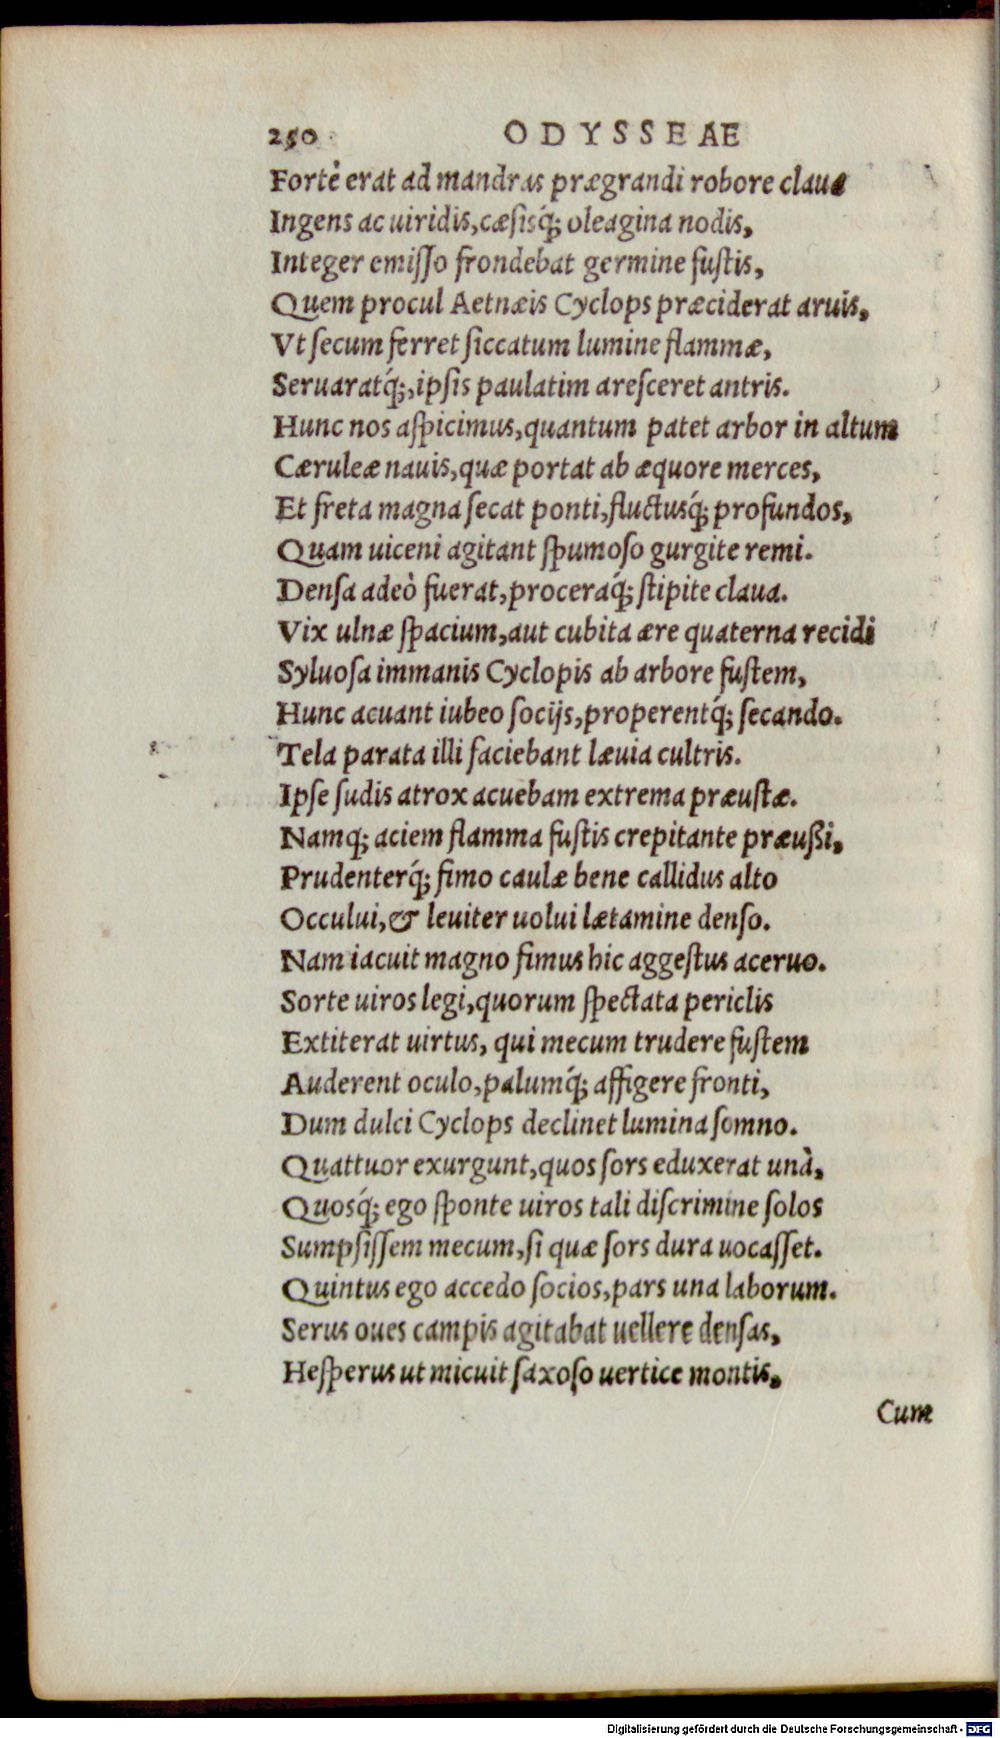 250 ODYSSEAE
Fortè erat ad mandras prægrandi robore claua
Ingens ac uiridis, cæsisq́; oleagina nodis,
Integer emisso frondebat germine fustis,
Quem procul Aetnæis Cyclops præciderat aruis,
Vt secum ferret siccatum lumine flammæ,
Seruaratq́;, ipsis paulatim aresceret antris.
Hunc nos aspicimus, quantum patet arbor in altum
Cæruleæ nauis, quæ portat ab æquore merces,
Et freta magna secat ponti, fluctusq́; profundos,
Quam uiceni agitant spumoso gurgite remi.
Densa adeò fuerat, proceraq́; stipite claua.
Vix ulnæ spacium, aut cubita ære quaterna recidi
Syluosa immanis Cyclopis ab arbore fustem,
Hunc acuant iubeo socijs, properentq́; secando.
Tela parata illi faciebant læuia cultris.
Ipse sudis atrox acuebam extrema præustæ.
Namq; aciem flamma fustis crepitante præußi,
Prudenterq́; fimo caulæ bene callidus alto
Occului, & leuiter uolui lætamine denso.
Nam iacuit magno fimus hic aggestus aceruo.
Sorte uiros legi, quorum spectata periclis
Extiterat uirtus, qui mecum trudere fustem
Auderent oculo, palumq́; affigere fronti,
Dum dulci Cyclops declinet lumina somno.
Quattuor exurgunt, quos sors eduxerat unà,
Quosq́; ego sponte uiros tali discrimine solos
Sumpsissem mecum, si quæ sors dura uocasset.
Quintus ego accedo socios, pars una laborum.
Serus oues campis agitabat uellere densas,
Hesperus ut micuit saxoso uertice montis,
Cum
Digitalisierung gefördert durch die Deutsche Forschungsgemeinschaft - DFG